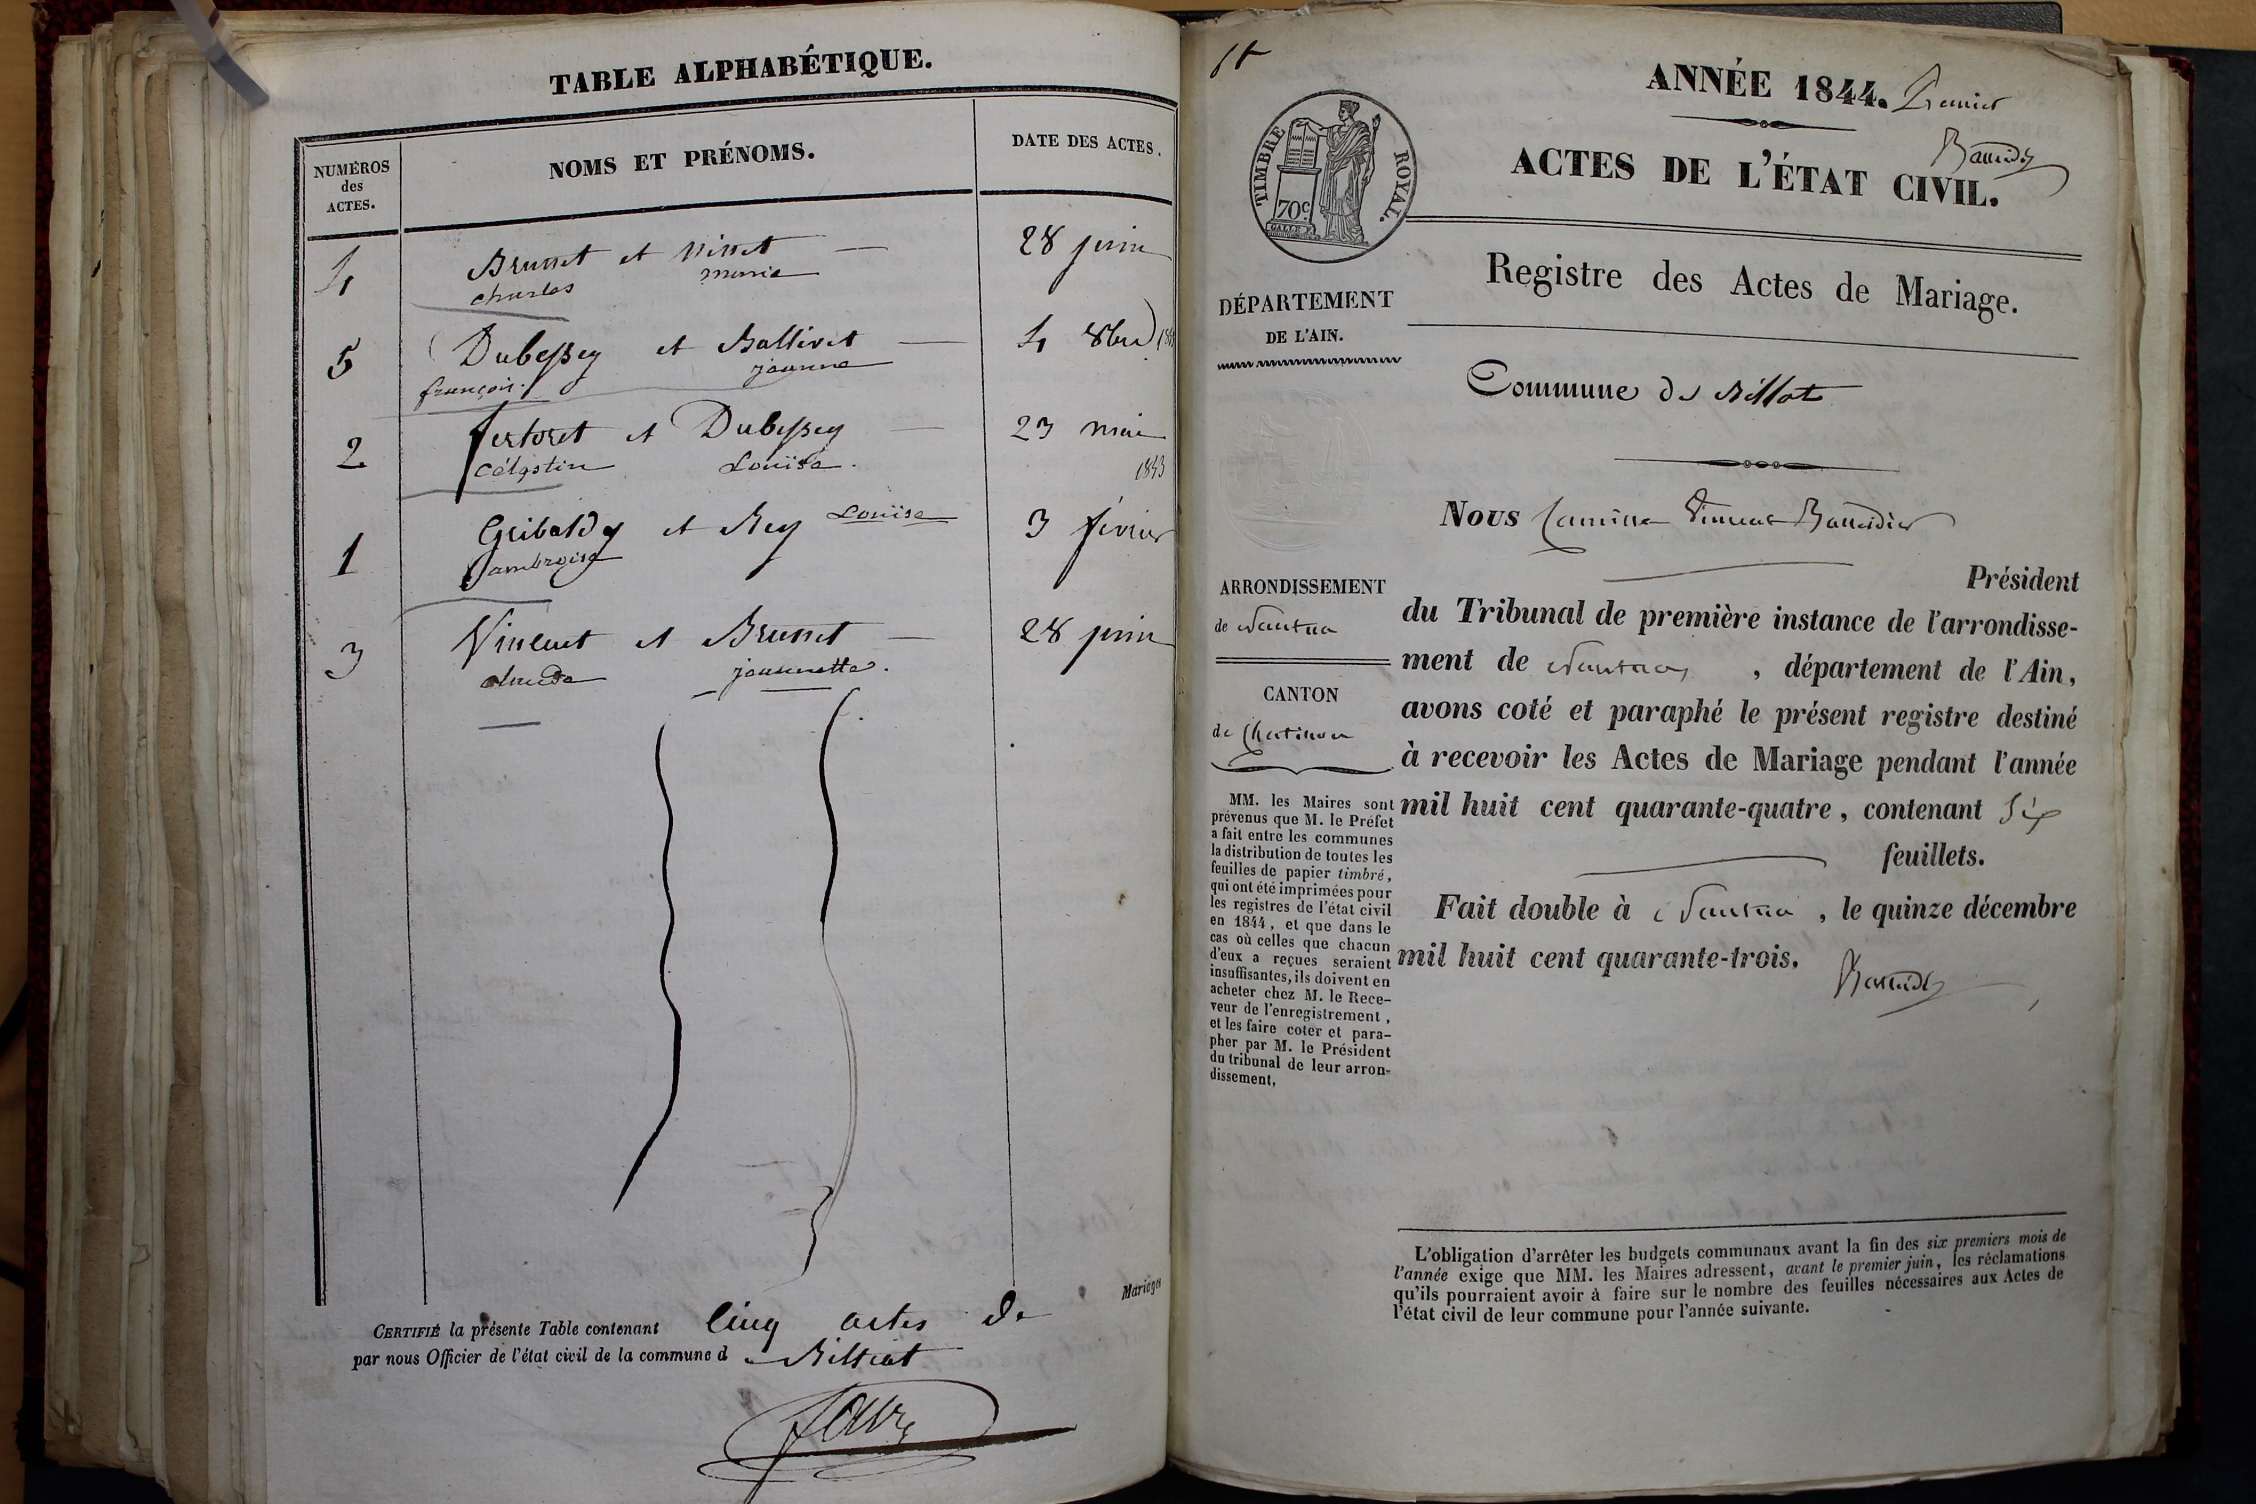 TABLE ALPHABÉTIQUE.
NUMÉROS
des
ACTES.
NOMS ET PRÉNOMS.
DATE DES ACTES.
4 Brunet et Ninet — 28 juin
Charles marie
5 Dubessey et Ballivet — 4 8bre
françois. jeanne
2 fertoret et Dubessey — 23 mai
Célestin Louise. 1843
1 Gribaldy et Rey Louise 3 février
ambroise
3 Vincent et Brunet — 28 juin
Claude jeannette.
Mariages
CERTIFIÉ la présente Table contenant Cinq actes de
par nous Officier de l'état civil de la commune de Billiat
ANNÉE 1844. Premier
TIMBRE ROYAL.
70c
ACTES DE L'ÉTAT CIVIL.
Registre des Actes de Mariage.
DÉPARTEMENT
DE L'AIN.
Commune de Billiat
Nous Camille Vincent Baudier
Président
ARRONDISSEMENT
de Nantua
CANTON
de Chatillon
du Tribunal de première instance de l'arrondisse-
ment de Nantua, département de l'Ain,
avons coté et paraphé le présent registre destiné
à recevoir les Actes de Mariage pendant l'année
mil huit cent quarante-quatre, contenant Six
feuillets.
Fait double à Nantua, le quinze décembre
mil huit cent quarante-trois.
MM. les Maires sont
prévenus que M. le Préfet
a fait entre les communes
la distribution de toutes les
feuilles de papier timbré,
qui ont été imprimées pour
les registres de l'état civil
en 1844, et que dans le
cas où celles que chacun
d'eux a reçues seraient
insuffisantes, ils doivent en
acheter chez M. le Rece-
veur de l'enregistrement,
et les faire coter et para-
pher par M. le Président
du tribunal de leur arron-
dissement,
L'obligation d'arrêter les budgets communaux avant la fin des six premiers mois de
l'année exige que MM. les Maires adressent, avant le premier juin, les réclamations
qu'ils pourraient avoir à faire sur le nombre des feuilles nécessaires aux Actes de
l'état civil de leur commune pour l'année suivante.